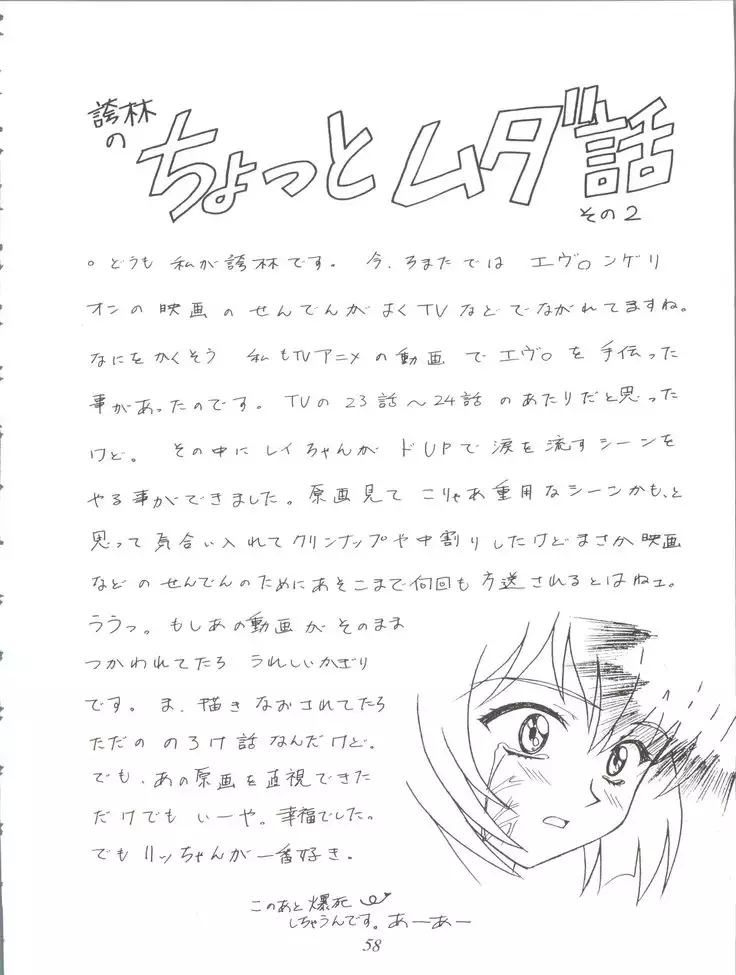 誇林の
ちょっとムダ話
その2
○どうも 私が誇林です。 今、ちまたでは エヴ○ンゲリ
オンの映画のせんでんがよくTVなどでながれてますね。
なにをかくそう 私もTVアニメの動画でエヴ○を手伝った
事があったのです。TVの23話〜24話のあたりだと思った
けど。 その中にレイちゃんがドUPで涙を流すシーンを
やる事ができました。原画見て こりゃあ重用なシーンかも、と
思って気合い入れてクリンナップや中割りしたけどまさか映画
などのせんでんのためにあそこまで何回も方送されるとはねェ。
ううっ。もしあの動画がそのまま
つかわれてたら うれしいかぎり
です。ま、描きなおされてたら
ただの のろけ話なんだけど。
でも、あの原画を直視できた
だけでも いーや。幸福でした。
でもリッちゃんが一番好き。
このあと爆死
しちゃうんです。あーあー
58